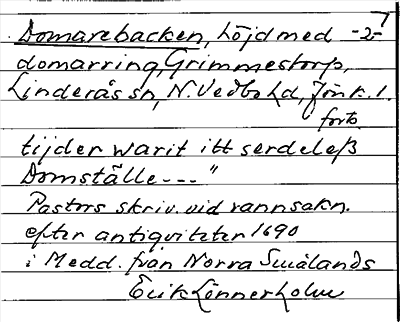 Domarebacken, höjd med -2-
domarring, Grimmestorp,
Linderås sn, N. Vedbo hd, Jönk. l.
forts.
tijder warit itt serdeleß
Domställe --- "
Pastors skriv. vid rannsakn.
efter antiqviteter 1690
i Medd. från Norra Smålands
Erik Lönnerholm